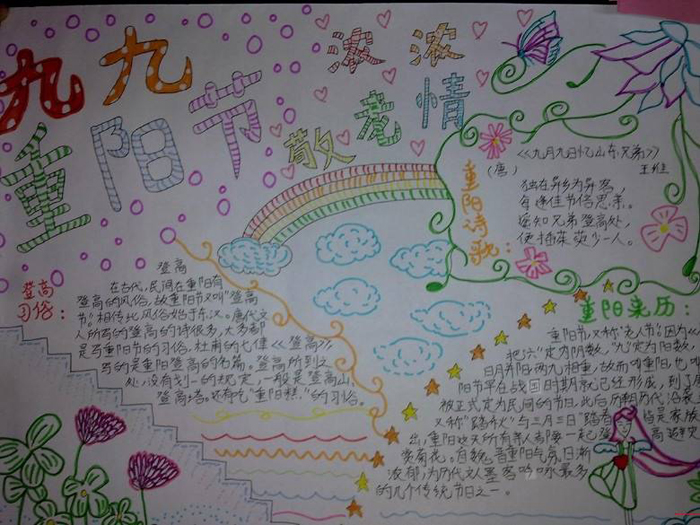 九九
重阳节
浓浓
敬老情
《九月九日忆山东兄弟》
(唐) 王维
独在异乡为异客,
每逢佳节倍思亲。
遥知兄弟登高处,
便插茱萸少一人。
重阳诗歌:
登高习俗:
登高
在古代,民间在重阳有
登高的风俗,故重阳节又叫“登高
节”。相传此风俗始于东汉。唐代文
人所写的登高的诗很多,大多都
是写重阳节的习俗,杜甫的七律《登高》
写的是重阳登高的名篇。登高所到之
处,没有划一的规定,一般是登高山、
登高塔。还有吃“重阳糕”的习俗。
重阳来历:
重阳节,又称“老人节”因为
把六”定为阴数,“九”定为阳数,
日月并阳两九相重,故而叫重阳,也叫
阳节早在战国时期就已经形成,到了
被正式定为民间的节日,此后历朝历代沿
又称“踏秋”与三月三日“踏春”皆是家族
出,重阳这天所有亲人都要一起登高
赏菊花。自魏晋重阳气氛日渐
浓郁,为历代文人墨客吟咏最多
的几个传统节日之一。